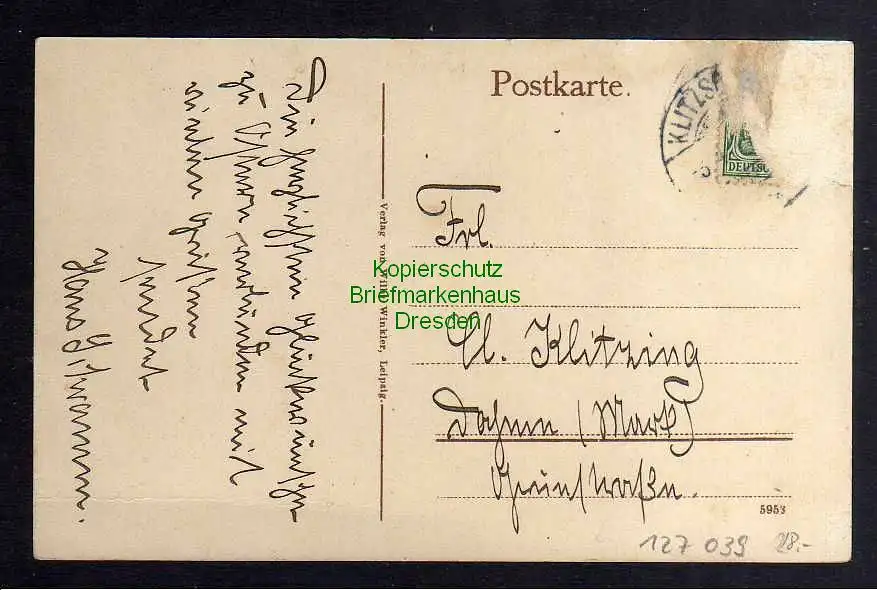 Die herzlichsten Glückwünsche
zu Ostern verbunden mit
vielen Grüßen
sendet
Hans
Postkarte.
KLITZS
DEUTSC
Verlag von Willy Winkler, Leipzig.
Kopierschutz
Briefmarkenhaus
Dresden
Frl.
Cl. Klitzing
Dahme (Mark)
5953
127 039 28.-